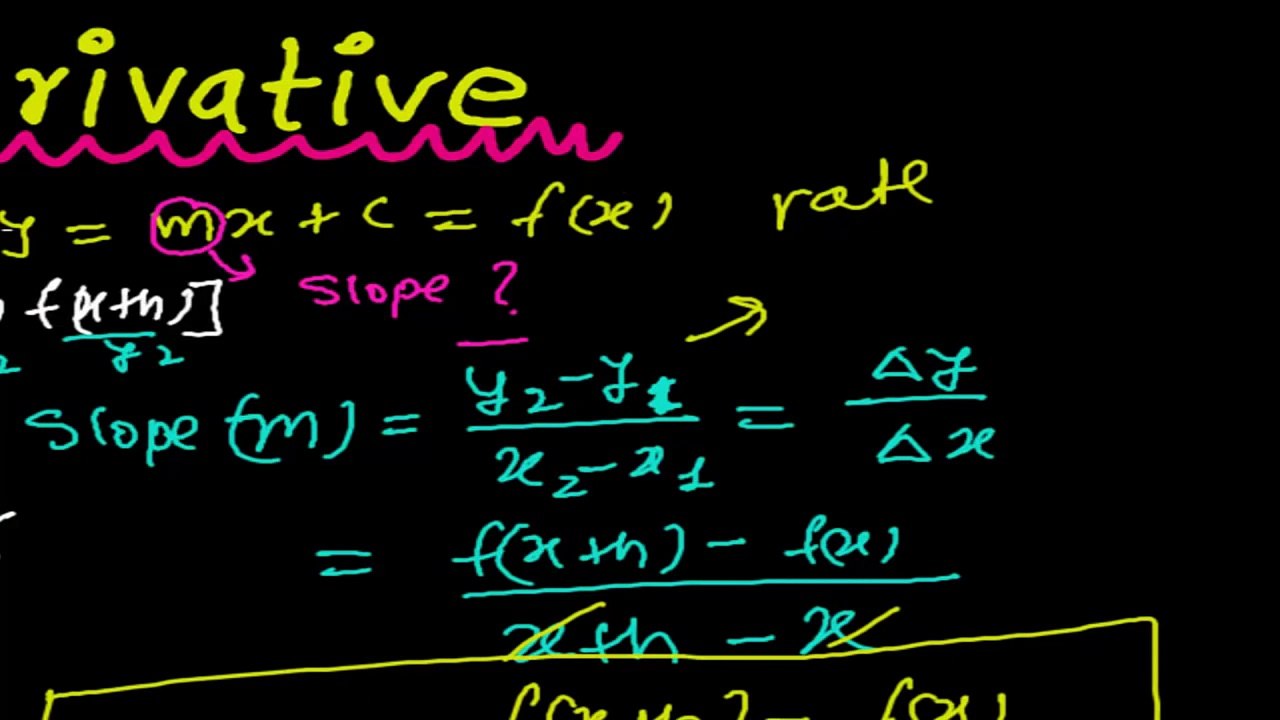 rivative
y = mx + c = f(x) rate
f(x+h)] slope ?
2 y2
slope (m) = y2-y1 / x2-x1 = Δy / Δx
= f(x+h) - f(x) / x+h - x
f(x+h) - f(x)